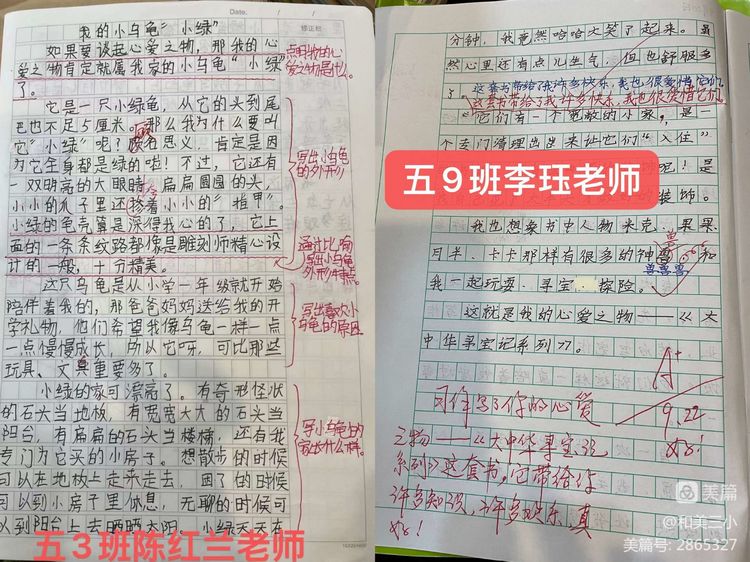 Date
修正栏
我的小乌龟“小绿”
如果要谈起心爱之物，那我的心
爱之物肯定就属我家的小乌龟“小绿”
了。
点明我的心
爱之物是什么。
它是一只小绿龟，从它的头到尾
巴也不足5厘米。那么我为什么要叫
它“小绿”呢？顾名思义，肯定是因
为它全身都是绿的啦！不过，它还有
一双明亮的大眼睛，扁扁圆圆的头，
小小的爪子里还捻着小小的“指甲”。
小绿的龟壳算是深得我心的了，它上
面的一条条纹路都像是雕刻师精心设
计的一般，十分精美。
写出小乌龟
的外形
通过比喻
写出小乌龟
外形特点
这只乌龟是从小学一年级就开始
陪伴着我的，那爸爸妈妈送给我的开
学礼物，他们希望我像乌龟一样一点
一点慢慢成长，所以它呀，可比那些
玩具、文具重要多了。
写出喜欢小
乌龟的原因
小绿的家可漂亮了。有奇形怪状
的石头当地板，有宽宽大大的石头当
阳台，有扁扁的石头当楼梯，还有我
专门为它买的小房子。想散步的时候
可以在地板上走来走去，困了的时候
可以到小房子里休息，无聊的时候可
以到阳台上去晒晒太阳。小绿天天在
写小乌龟的
家长什么样。
五3班陈红兰老师
分钟，我竟然哈哈大笑了起来。虽
然心里还有点儿生气，但也舒服多
了。
这套书带给了我许多快乐，我也很爱惜它们。
这套书带给了我许多快乐，我也很爱惜它们。
它们有一个宽敞的小家，是一
个专门清理出来让它们“入住”
吧！是
的装饰。
五9班李珏老师
我也想象书中人物米克、果果、
月半、卡卡那样有很多的神兽，和
兽
兽兽兽
我一起玩耍、寻宝、探险。
这就是我的心爱之物——《大
中华寻宝记系列》。
A+
9.22
习作写了你的心爱
之物——《大中华寻宝记
系列》这套书，它带给你
许多知识，许多欢乐，真
好！
美篇
@和美三小
美篇号：2865327